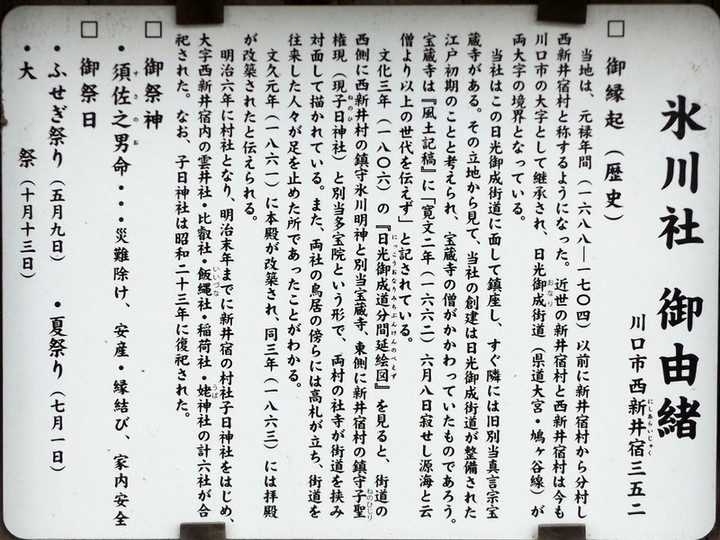 氷川社 御由緒
川口市西新井宿三五二
にしあらいじゅく
□ 御縁起（歴史）
当地は、元禄年間（一六八八―一七〇四）以前に新井宿村から分村し
西新井宿村と称するようになった。近世の新井宿村と西新井宿村は今も
川口市の大字として継承され、日光御成街道（県道大宮・鳩ヶ谷線）が
おなり
両大字の境界となっている。
当社はこの日光御成街道に面して鎮座し、すぐ隣には旧別当真言宗宝
蔵寺がある。その立地から見て、当社の創建は日光御成街道が整備された
江戸初期のことと考えられ、宝蔵寺の僧がかかわっていたものであろう。
宝蔵寺は『風土記稿』に「寛文二年（一六六二）六月八日寂せし源海と云
僧より以上の世代を伝えず」と記されている。
文化三年（一八〇六）の『日光御成道分間延絵図』を見ると、街道の
にっこうおなりみちぶんけんのべえず
西側に西新井村の鎮守氷川明神と別当宝蔵寺、東側に新井宿村の鎮守子聖
ねのひじり
権現（現子日神社）と別当多宝院という形で、両村の社寺が街道を挟み
ねのひ
対面して描かれている。また、両社の鳥居の傍らには高札が立ち、街道を
往来した人々が足を止めた所であったことがわかる。
文久元年（一八六一）に本殿が改築され、同三年（一八六三）には拝殿
が改築されたと伝えられる。
明治六年に村社となり、明治末年までに新井宿の村社子日神社をはじめ、
大字西新井宿内の雲井社・比叡社・飯縄社・稲荷社・姥神社の計六社が合
いいづな
うば
祀された。なお、子日神社は昭和二十三年に復祀された。
□ 御祭神
・須佐之男命・・・災難除け、安産・縁結び、家内安全
すさのお
□ 御祭日
・ふせぎ祭り（五月九日） ・夏祭り（七月一日）
・大 祭（十月十三日）